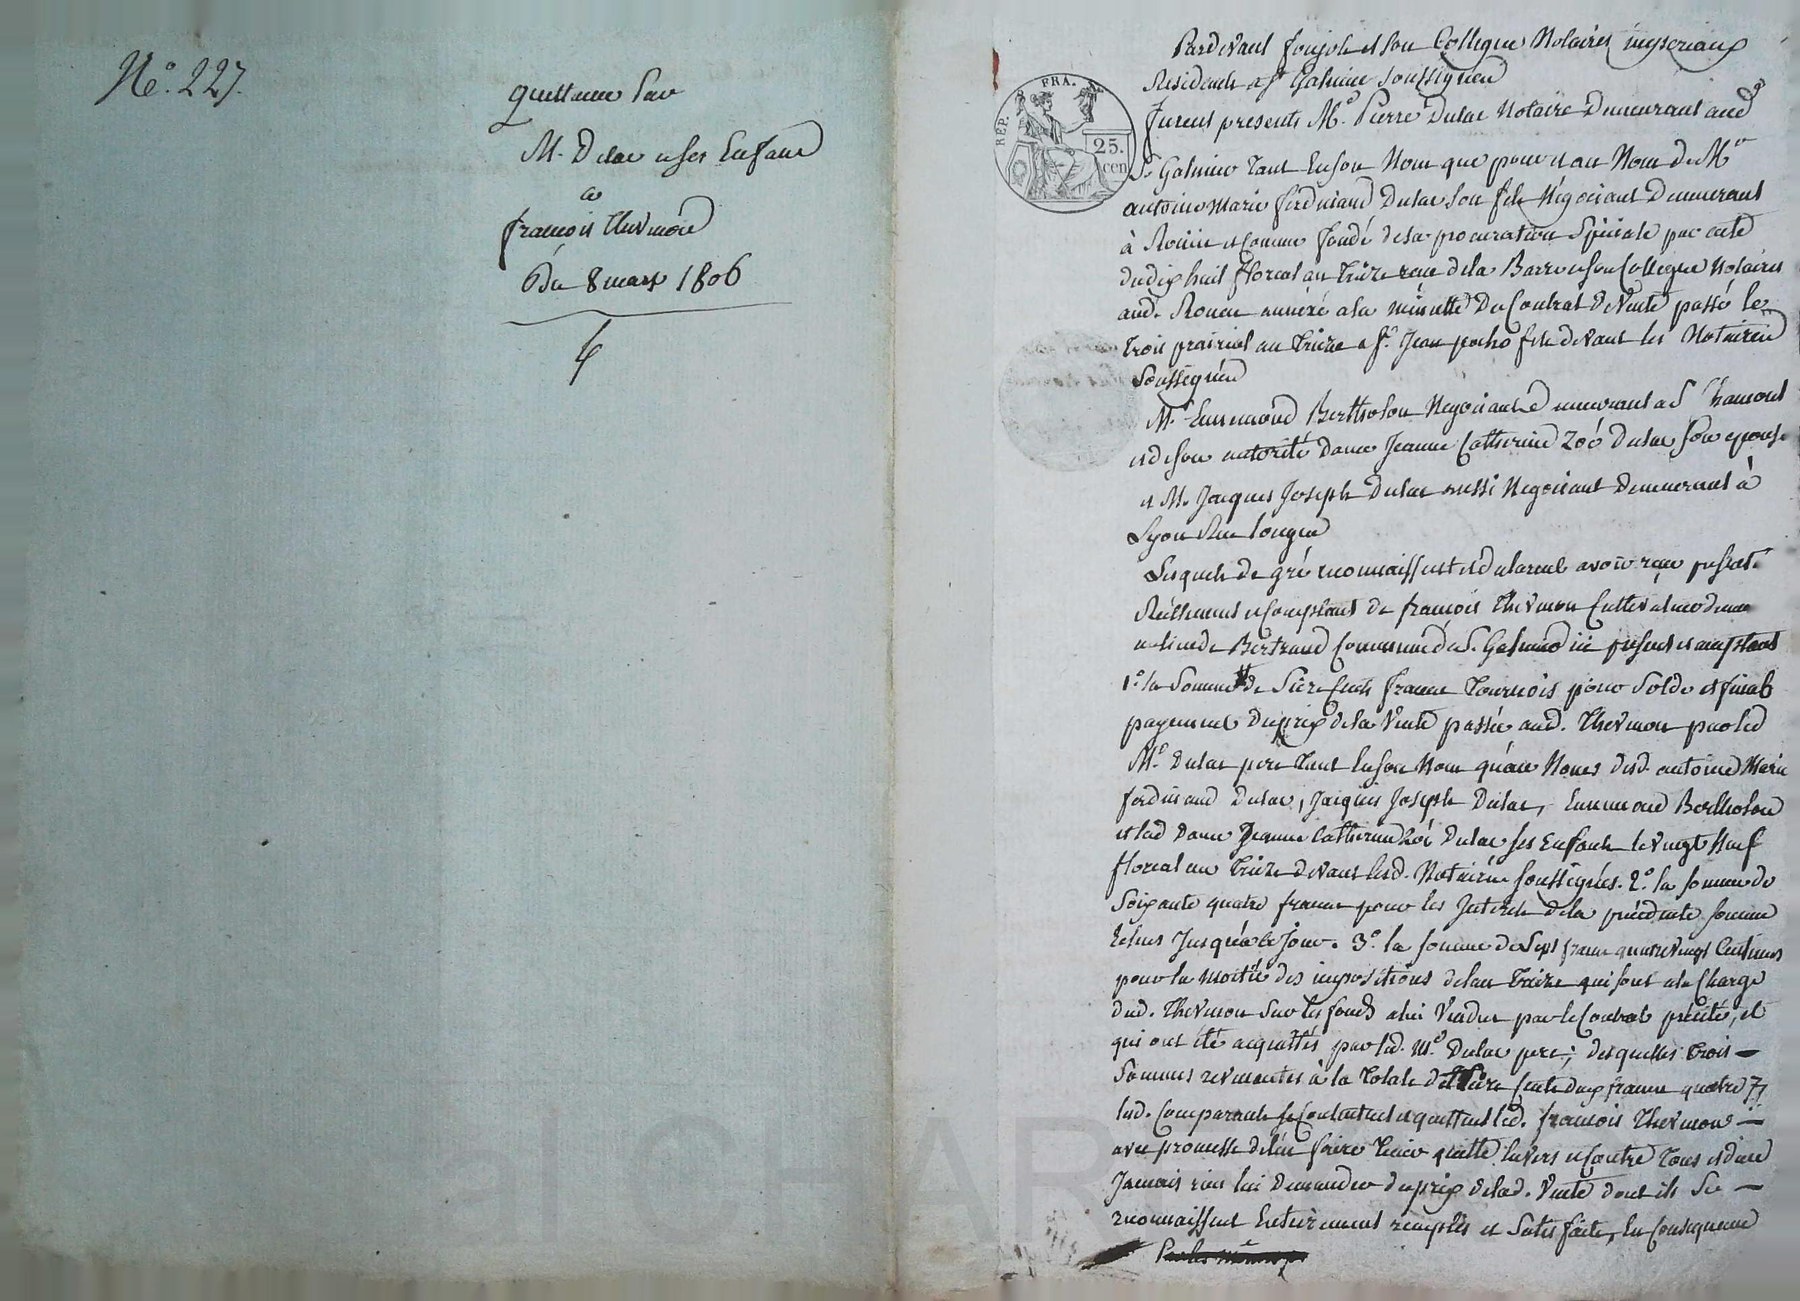 No. 227.
quittance par
M. Dulac et ses Enfans
a
françois Thevenon
Du 8 mars 1806
REP. FRA.
25.
cen
Pardevant et son Collegue Notaires impériaux
Residents a St Galmier soussignés
furent presents Me. Pierre Dulac Notaire Demeurant aud.
St. Galmier tant En son Nom que pour et au Nom de Mr
antoine marie ferdinand Dulac son fils Négociant Demeurant
à Rouen et Comme fondé de sa procuration Spéciale par acte
du dix huit floreal an treize reçu de la Barre et son Collegue Notaires
aud. Rouen annéxé a la minutte Du Contrat de Vente passé le
trois prairial an treize a Sr. Jean fils devant les Notaires
Soussignés
Mr. Ennemond Bertholon Negociant demeurant a St Chamond
et de son autorité Dame Jeanne Catherine Zoé Dulac son epouse
et M. Jacques Joseph Dulac aussi Negociant Demeurant à
Lyon Rue longue
Lesquels de gré reconnaissent et déclarent avoir reçu présent.
Réellement et Comptant de françois Thevenon Cultivateur dem.
au lieu de Bertrand Commune de St. Galmier ici présent et acceptant
1.° la Somme de Seize Cents francs tournois pour Solde et final
payement du prix de la Vente passée aud. Thevenon par led.
Me. Dulac pere tant En son Nom qu'au Noms desd. antoine Marie
ferdinand Dulac, Jacques Joseph Dulac, Ennemond Bertholon
et lad Dame Jeanne Catherine Zoé Dulac ses Enfants le vingt Neuf
floreal an treize devant lesd. Notaires soussignés. 2.° la somme de
Soixante quatre francs pour les Interets de la précédente somme
Echus Jusqu'a ce Jour. 3.° la somme de Sept francs quatrevingt Centimes
pour la moitié des impositions de l'an treize qui sont a la Charge
dud. Thevenon Sur les fonds a lui Vendus par le Contrat précité, et
qui ont été acquittés par led. Me. Dulac pere; desquelles trois
Sommes revenantes à la totale de Seize Cents
lesd. Comparants se Contentent et quittent led. françois Thevenon
avec promesse de l'en faire tenir quitte Envers et Contre tous et de ne
Jamais rien lui Demander du prix de lad. Vente dont ils Se
reconnaissent Entièrement remplis et Satisfaits, En Consequence